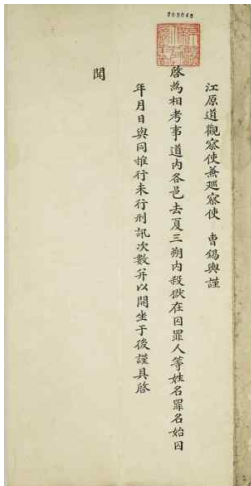 江原道觀察使兼巡察使 曺錫輿謹
啓爲相考事道內各邑去夏三朔內殺獄在囚罪人等姓名罪名始囚
年月日與同推行未行刑訊次數幷以開坐于後謹具啓
聞